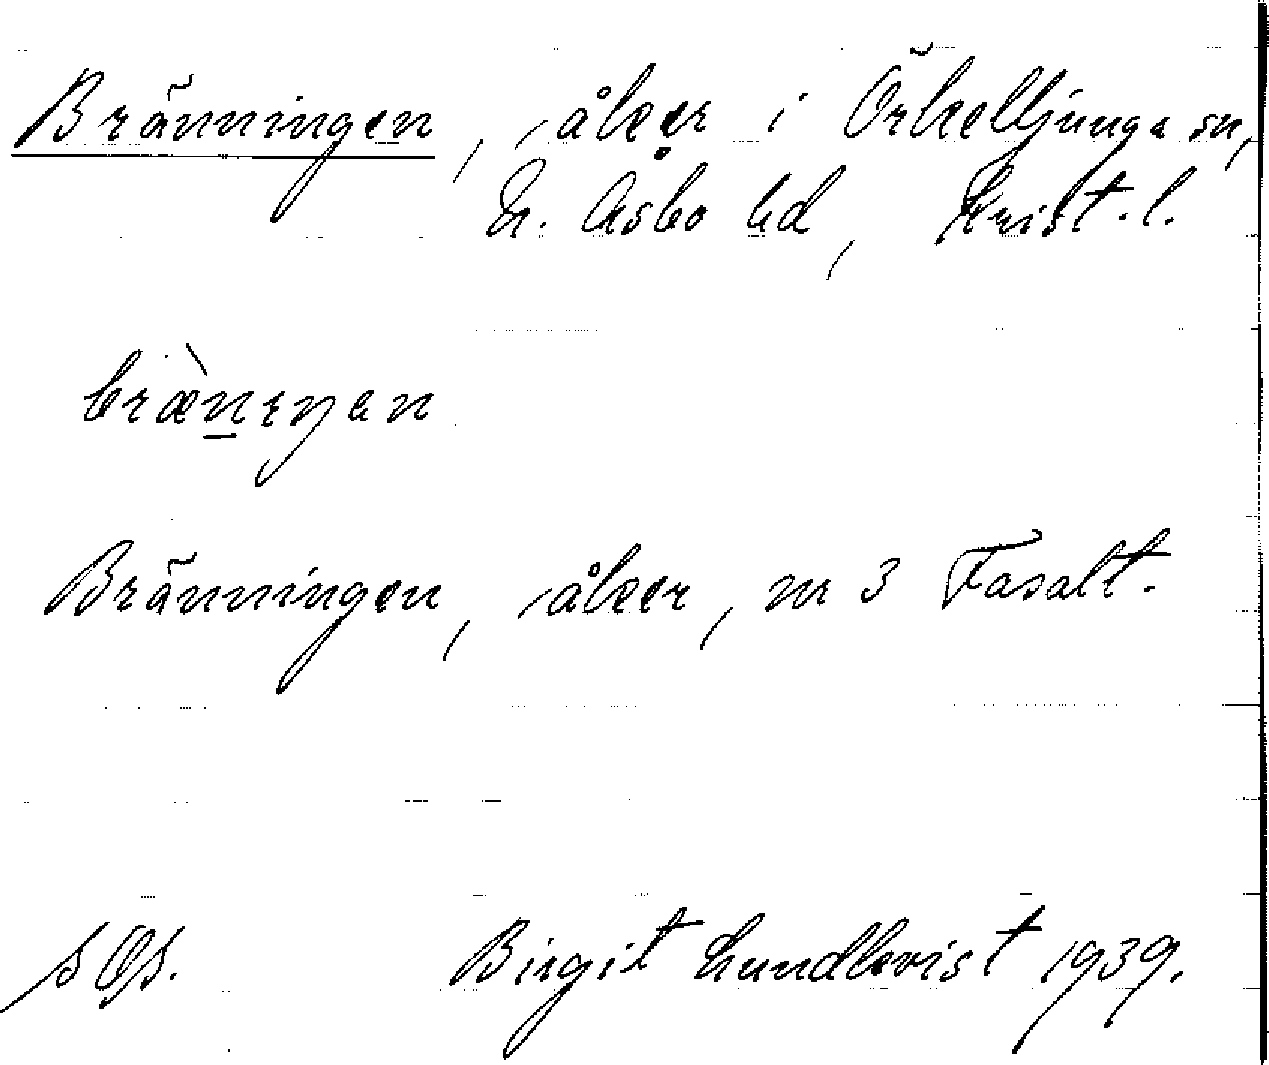 Bränningen, åker i Örkelljunga sn,
N. Åsbo hd, Krist. l.
bræ̀nıŋen
Bränningen, åker, nr 3 Fasalt.
Birgit Lundkvist 1939.